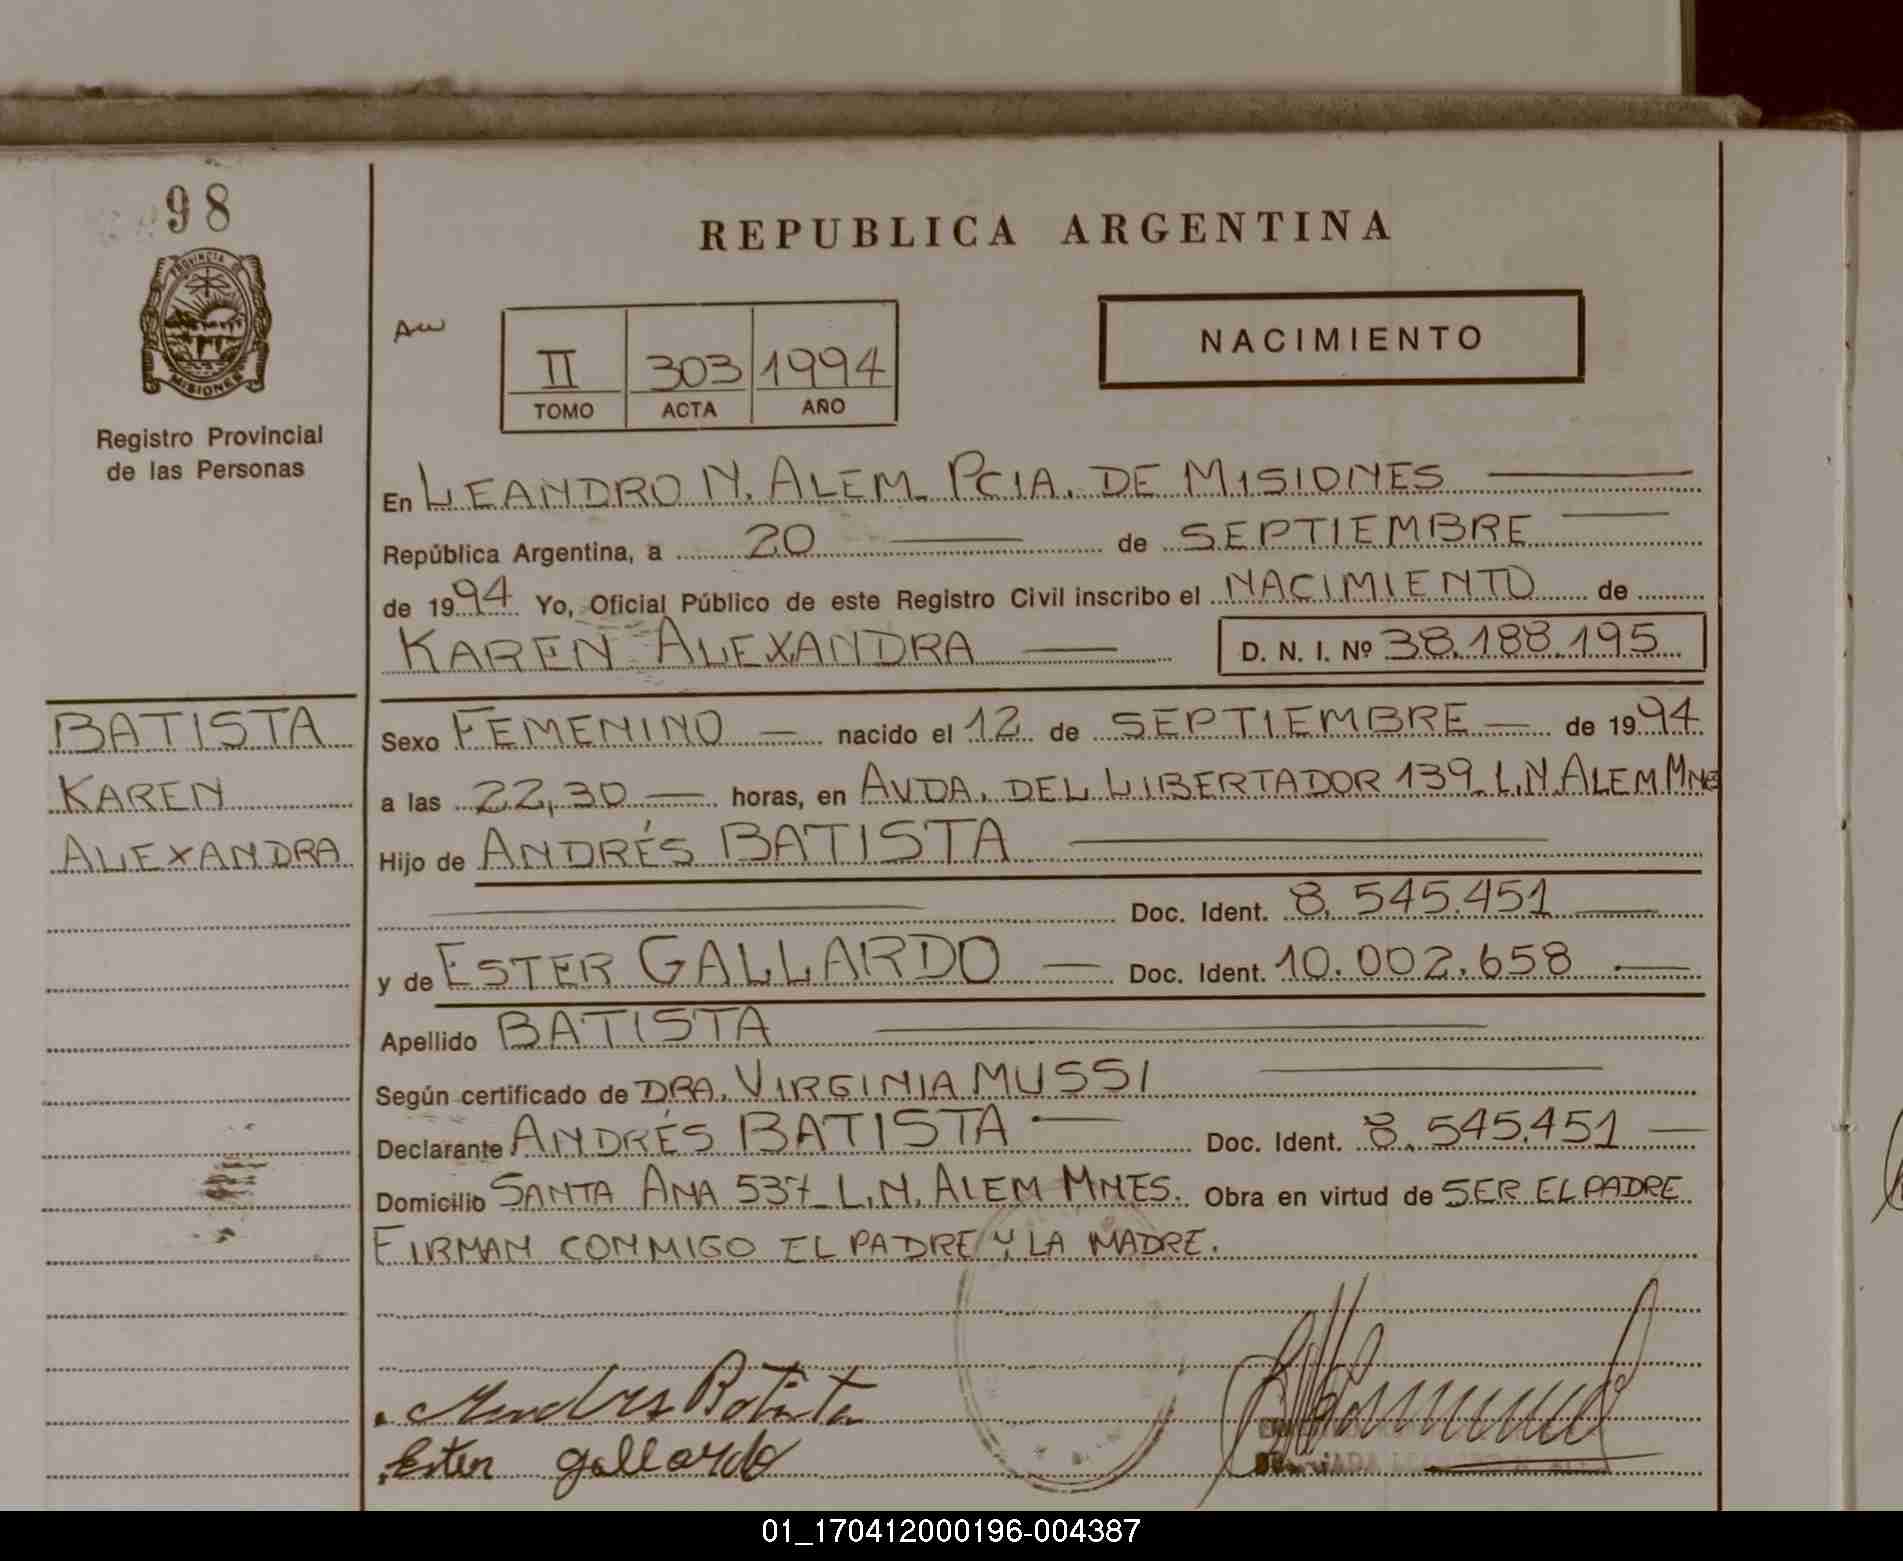 98
PROVINCIA DE
MISIONES
Registro Provincial
de las Personas
REPUBLICA ARGENTINA
II 303 1994
TOMO ACTA AÑO
NACIMIENTO
En LEANDRO N. ALEM. PCIA. DE MISIONES
República Argentina, a 20 de SEPTIEMBRE
de 1994 Yo, Oficial Público de este Registro Civil inscribo el NACIMIENTO de
KAREN ALEXANDRA D. N. I. Nº 38.188.195
BATISTA
KAREN
ALEXANDRA
Sexo FEMENINO nacido el 12 de SEPTIEMBRE de 1994
a las 22,30 horas, en AVDA. DEL LIBERTADOR 139_L.N.ALEM MNES
Hijo de ANDRÉS BATISTA
Doc. Ident. 8.545.451
y de ESTER GALLARDO Doc. Ident. 10.002.658
Apellido BATISTA
Según certificado de DRA. VIRGINIA MUSSI
Declarante ANDRÉS BATISTA Doc. Ident. 8.545.451
Domicilio SANTA ANA 537_L.N. ALEM MNES. Obra en virtud de SER EL PADRE
FIRMAN CONMIGO EL PADRE Y LA MADRE.
Andres Batista
Ester gallardo
01_170412000196-004387